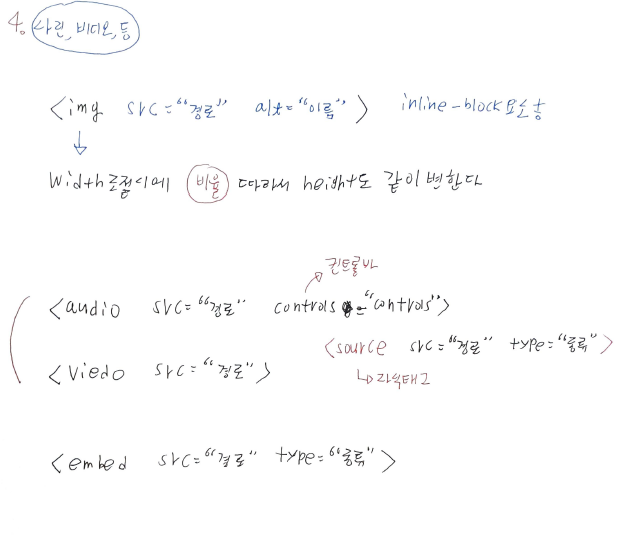 4. 사진, 비디오, 등
<img src="경로" alt="이름"> inline-block 요소
↓
width 조절시에 비율 따라서 height도 같이 변한다
컨트롤바
<audio src="경로" controls="controls">
<source src="경로" type="종류">
<viedo src="경로">
↳ 자식태그
<embed src="경로" type="종류">